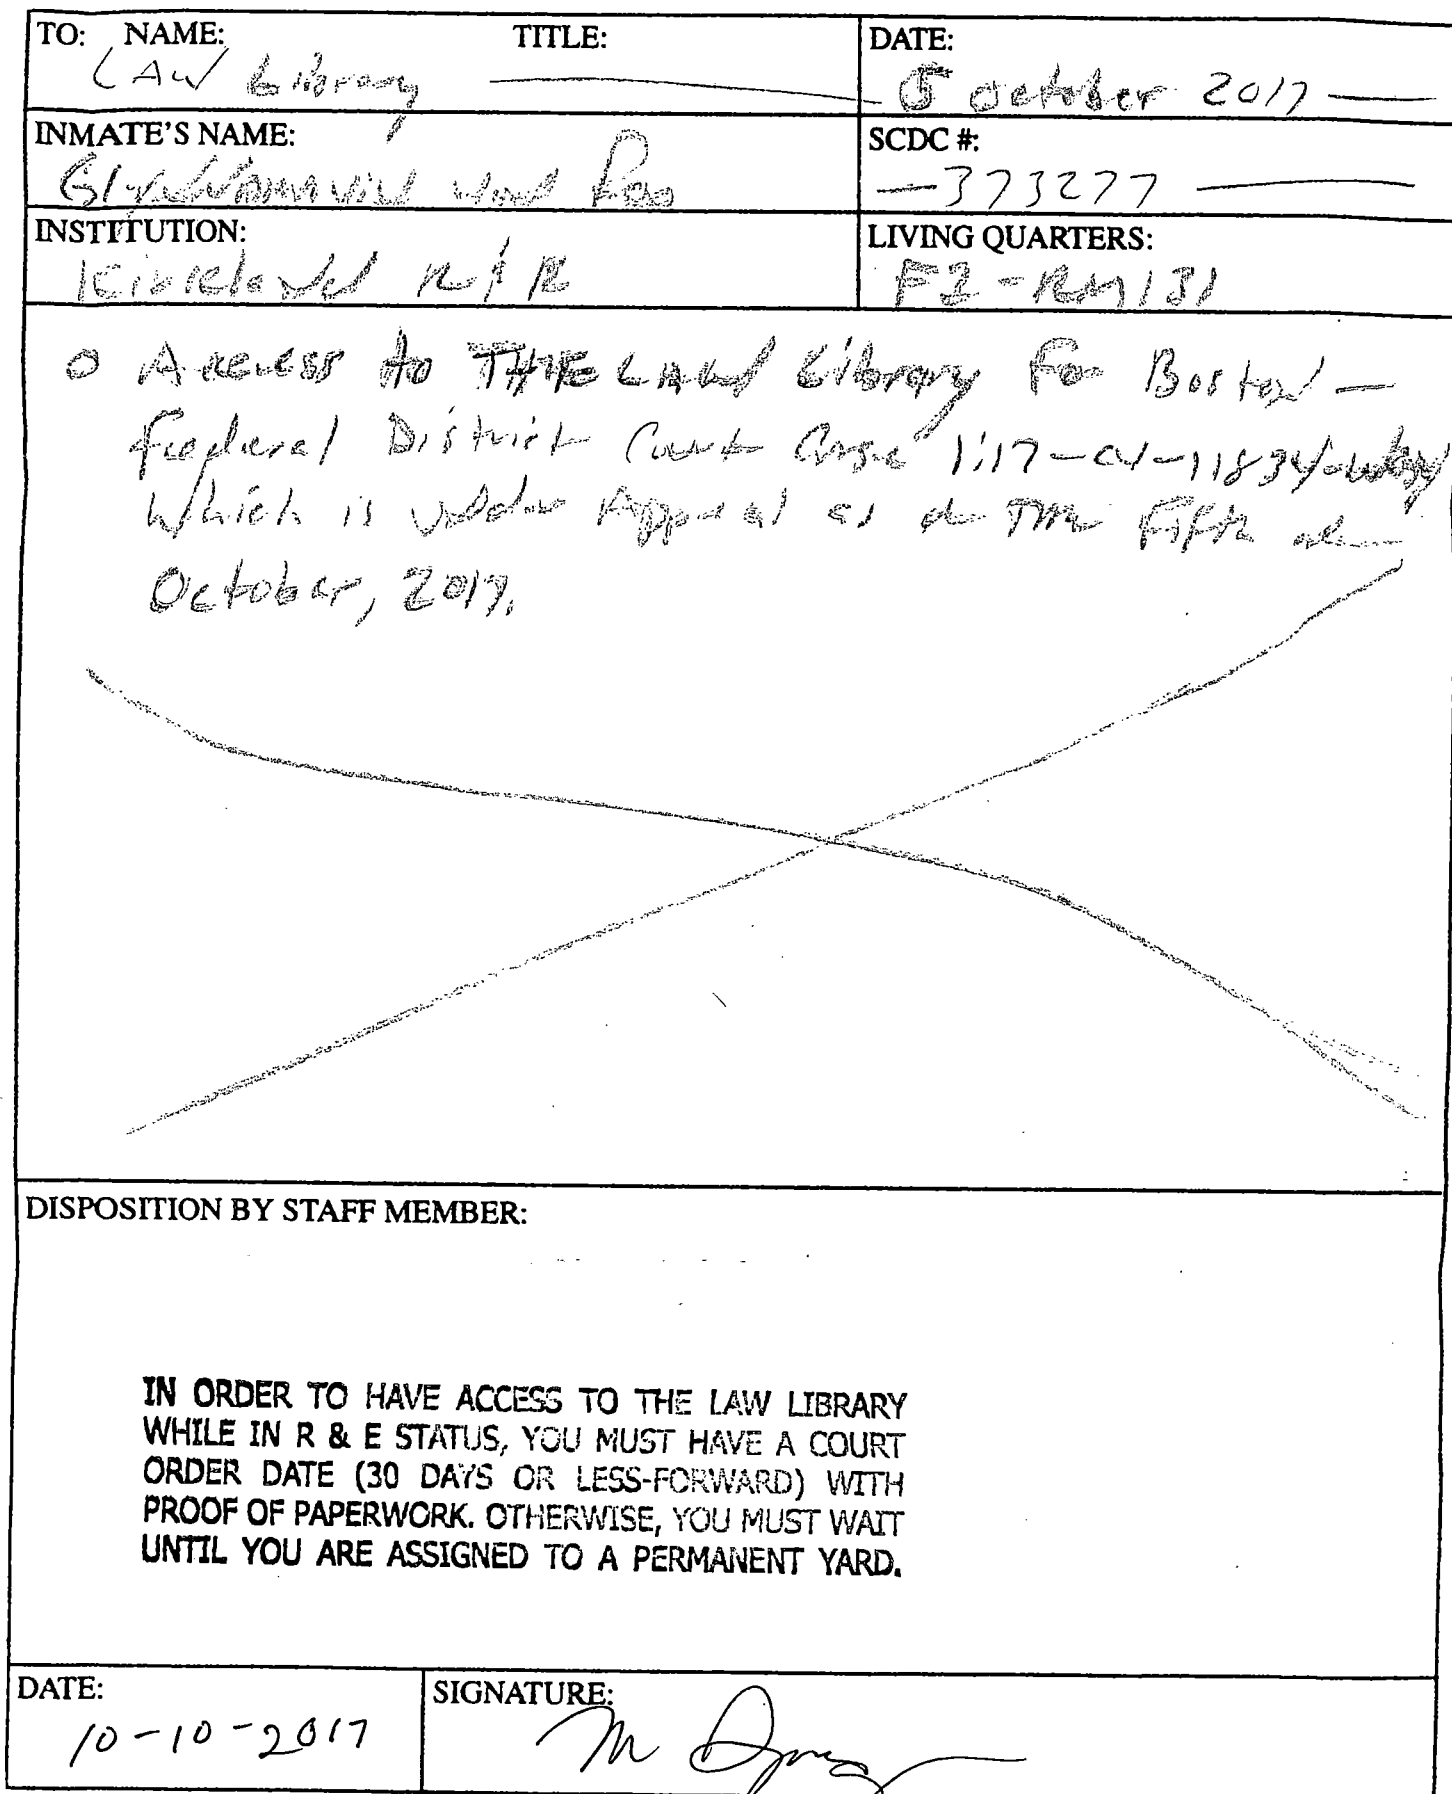 TO: NAME: TITLE: DATE:
LAW Library 5 October 2017
INMATE'S NAME: SCDC #:
373277
INSTITUTION: LIVING QUARTERS:
Kirkland R & E
o Access to THE LAW Library For Boston –
Federal District Court Case 1:17-cv-11834
Which is under Appeal as of The Fifth of
October, 2017.
DISPOSITION BY STAFF MEMBER:
IN ORDER TO HAVE ACCESS TO THE LAW LIBRARY
WHILE IN R & E STATUS, YOU MUST HAVE A COURT
ORDER DATE (30 DAYS OR LESS-FORWARD) WITH
PROOF OF PAPERWORK. OTHERWISE, YOU MUST WAIT
UNTIL YOU ARE ASSIGNED TO A PERMANENT YARD.
DATE: SIGNATURE:
10-10-2017